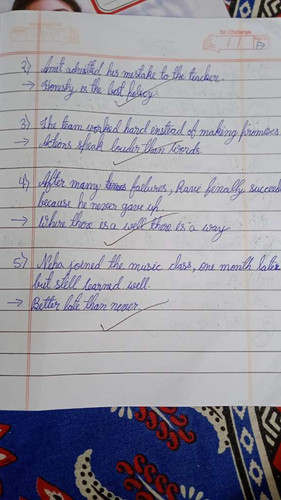 2) Amit admitted his mistake to the teacher.
→ Honesty is the best policy.
3) The team worked hard instead of making promises.
→ Actions speak louder than words.
4) After many failures, Ravi finally succeed
because he never gave up.
→ Where there is a will there is a way
5) Neha joined the music class, one month later
but still learned well.
→ Better late than never.